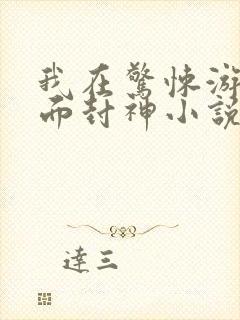 我在驚悚游
而封神小說
達三